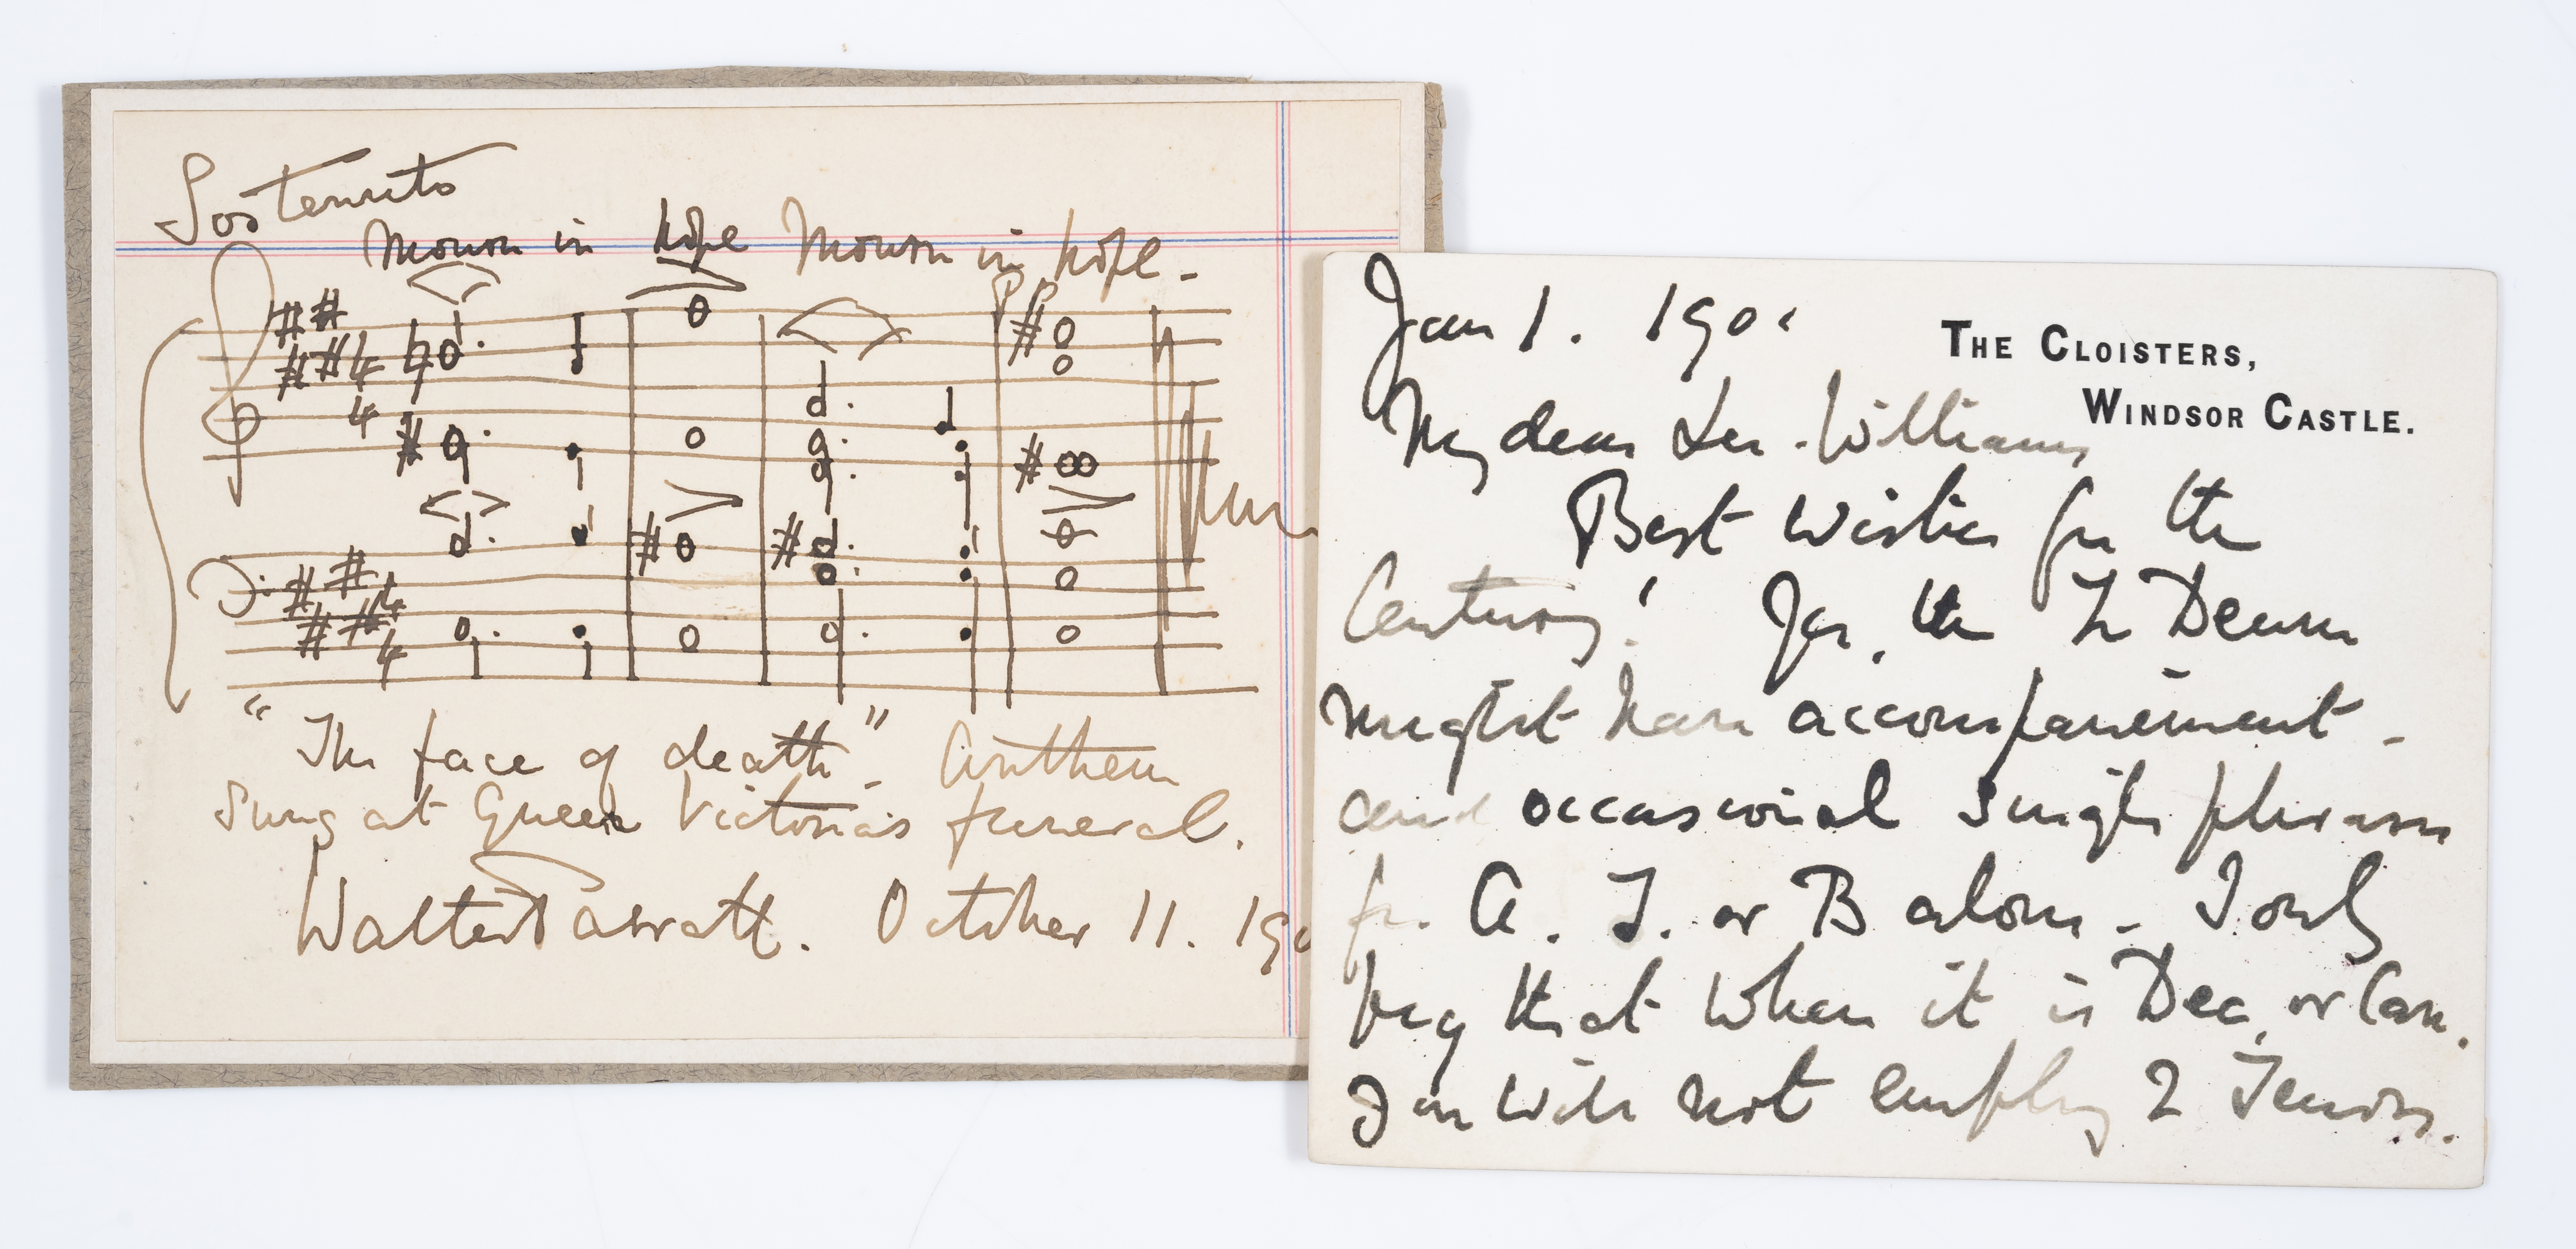 Sostenuto
Mourn in hope Mourn in hope -
pp
4
4
4
4
"The face of death" - Anthem
Sung at Queen Victoria's funeral.
Walter Parratt. October 11. 190
Jan 1. 190
THE CLOISTERS,
WINDSOR CASTLE.
My dear Lee-Williams
Best Wishes for the
Century! Yes, the Te Deum
might have accompaniment -
and occasional single phrases
for A. T. or B alone - I only
beg that when it is Dec. or Can.
You will not employ 2 Tenors.